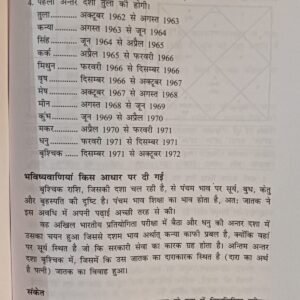 4. पहली अन्तर दशा तुला की होगी।
तुला ......... अक्टूबर 1962 से अगस्त 1963
कन्या ......... अगस्त 1963 से जून 1964
सिंह ......... जून 1964 से अप्रैल 1965
कर्क ......... अप्रैल 1965 से फरवरी 1966
मिथुन ......... फरवरी 1966 से दिसम्बर 1966
वृष ......... दिसम्बर 1966 से अक्टूबर 1967
मेष ......... अक्टूबर 1967 से अगस्त 1968
मीन ......... अगस्त 1968 से जून 1969
कुंभ ......... जून 1969 से अप्रैल 1970
मकर ......... अप्रैल 1970 से फरवरी 1971
धनु ......... फरवरी 1971 से दिसम्बर 1971
वृश्चिक ......... दिसम्बर 1971 से अक्टूबर 1972
भविष्यवाणियां किस आधार पर दी गई
वृश्चिक राशि, जिसकी दशा चल रही है, से पंचम भाव पर सूर्य, बुध, केतु
और बृहस्पति की दृष्टि है। पंचम भाव शिक्षा का भाव होता है, अत: जातक ने
इस अवधि में अपनी पढ़ाई अच्छी तरह से की।
वह अखिल भारतीय प्रतियोगिता परीक्षा में बैठा और धनु की अन्तर दशा में
उसका चयन हुआ जिससे दशम भाव अर्थात् कन्या काफी प्रबल है, क्योंकि यहां
पर सूर्य स्थित है जो कि सरकारी सेवा का कारक ग्रह होता है। अन्तिम अन्तर
दशा वृश्चिक में, जिसमें कि उस जातक का दाराकारक स्थित है (दारा का अर्थ
है पत्नी) जातक का विवाह हुआ।
संकेत